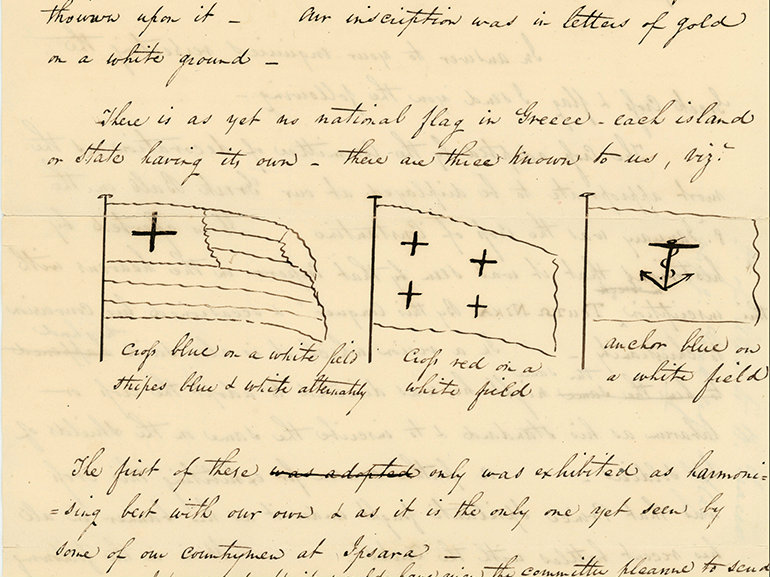 thrown upon it — Our inscription was in letters of gold
on a white ground —
There is as yet no national flag in Greece — each island
or state having its own — there are three known to us, viz.t
Cross blue on a white field
stripes blue & white alternately
Cross red on a
white field
anchor blue on
a white field
The first of these was adopted only was exhibited as harmoni=
=sing best with our own & as it is the only one yet seen by
some of our countrymen at Ipsara —
the committee pleasure to send